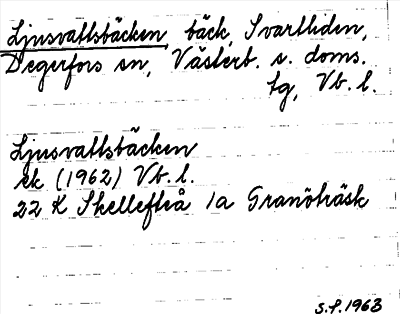 Ljusvattsbäcken bäck, Svartliden,
Degerfors sn, Västerb. s. doms.
tg, Vb. l.
Ljusvattsbäcken
ek (1962) Vb. l.
22 K Skellefteå 1a Granöträsk
S.f. 1963